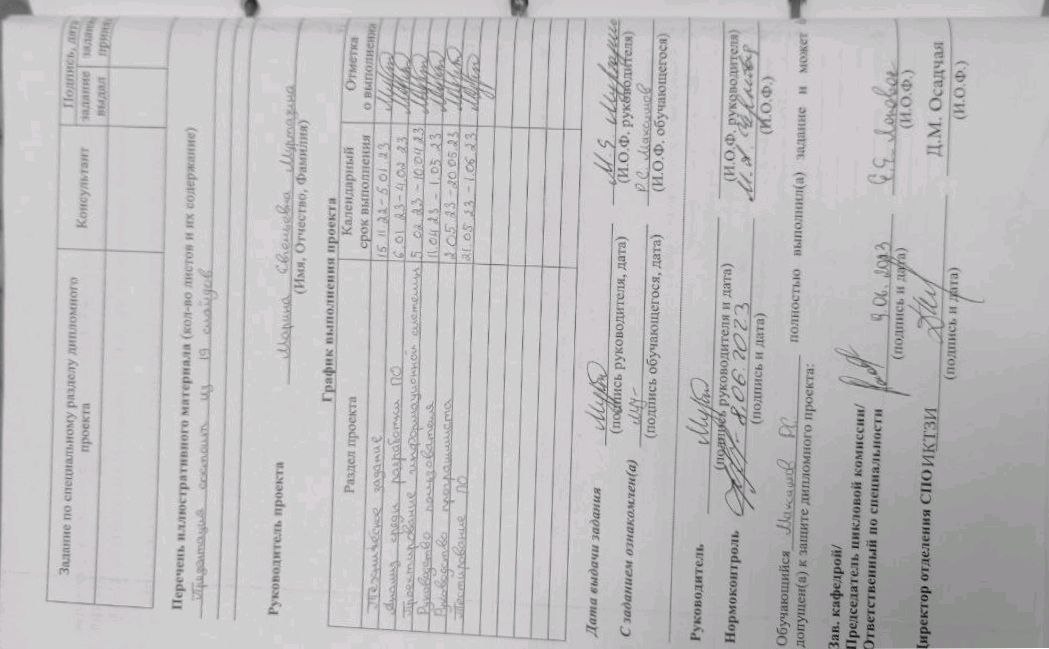 Задание по специальному разделу дипломного проекта
Консультант
Подпись, дата
задание выдал
Перечень иллюстративного материала (кол-во листов и их содержание)
Презентация состоит из 19 слайдов
Руководитель проекта Марина Евгеньевна Муртазина
(Имя, Отчество, Фамилия)
График выполнения проекта
Раздел проекта Календарный срок выполнения Отметка о выполнении
Техническое задание 15 11 22 - 5 01. 23
Анализ среды разработки ПО 6 01 23 - 4 02 23
Проектирование информационной системы 5 02 23 - 10.04 23
Руководство пользователя 11.04 23 - 1.05 23
Руководство программиста 2.05 23 - 20 05.23
Тестирование ПО 21 05 23 - 1.06 23
Дата выдачи задания
(подпись руководителя, дата) (И.О.Ф. руководителя)
С заданием ознакомлен(а) Р С. Максимов
(подпись обучающегося, дата) (И.О.Ф. обучающегося)
Руководитель
(подпись руководителя и дата) (И.О.Ф. руководителя)
Нормоконтроль 8.06.2023
(подпись и дата) (И.О.Ф.)
Обучающийся Максимов РС полностью выполнил(а) задание и может
допущен(а) к защите дипломного проекта:
Зав. кафедрой/
Председатель цикловой комиссии/
Ответственный по специальности 9.06. 2023
(подпись и дата) (И.О.Ф.)
Директор отделения СПО ИКТЗИ Д.М. Осадчая
(подпись и дата) (И.О.Ф.)